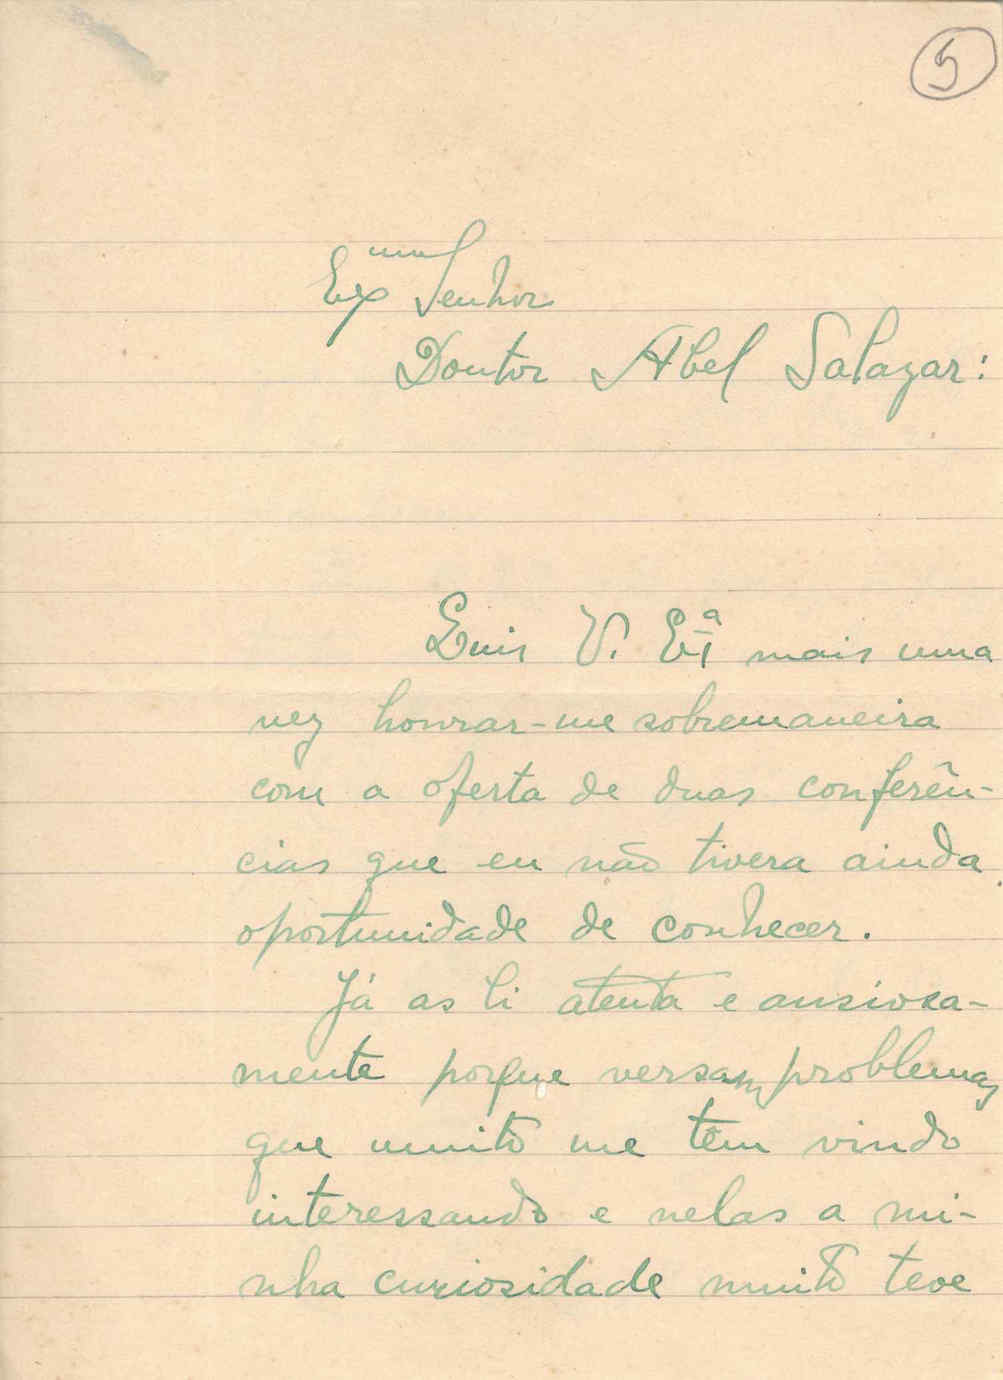 5
Exmo Senhor
Doutor Abel Salazar:
Quis V. Exª mais uma
vez honrar-me sobremaneira
com a oferta de duas conferên-
cias que eu não tivera ainda
oportunidade de conhecer.
Já as li atenta e ansiosa-
mente porque versam problemas
que muito me têm vindo
interessando e nelas a mi-
nha curiosidade muito teve